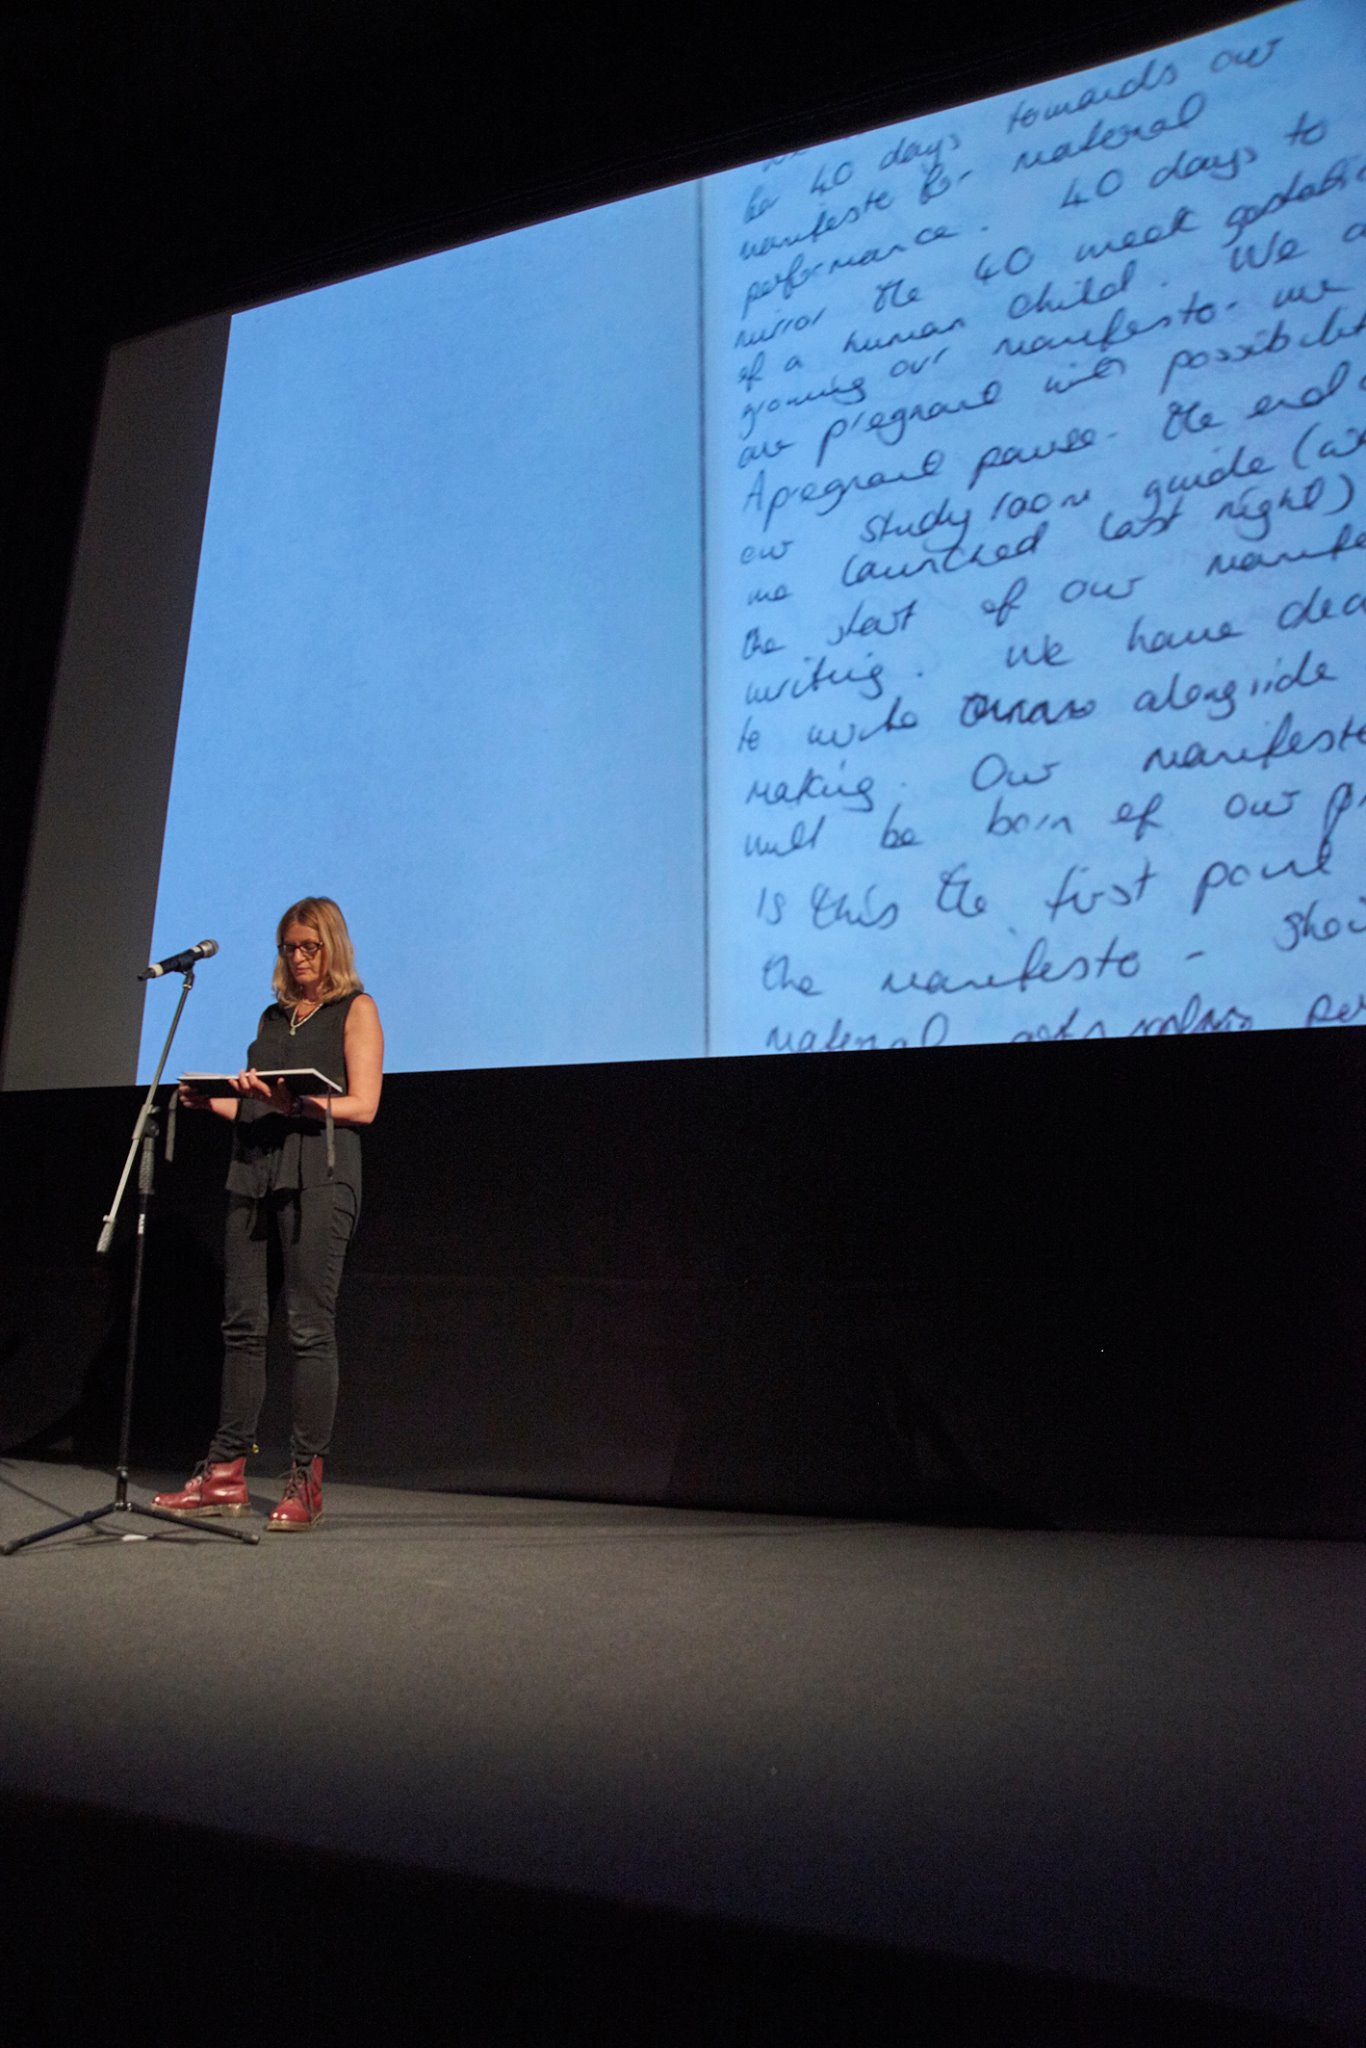 be 40 days towards our
manifesto for maternal
performance. 40 days to
mirror the 40 week gestati
of a human child. We a
growing our manifesto - we
are pregnant with possibilit
A pregnant pause. The end o
our study room guide (wi
we launched last night)
the start of our manife
writing. We have dec
to write alongside
making. Our manifesto
will be born of our pr
Is this the first point
the manifesto - shou
maternal